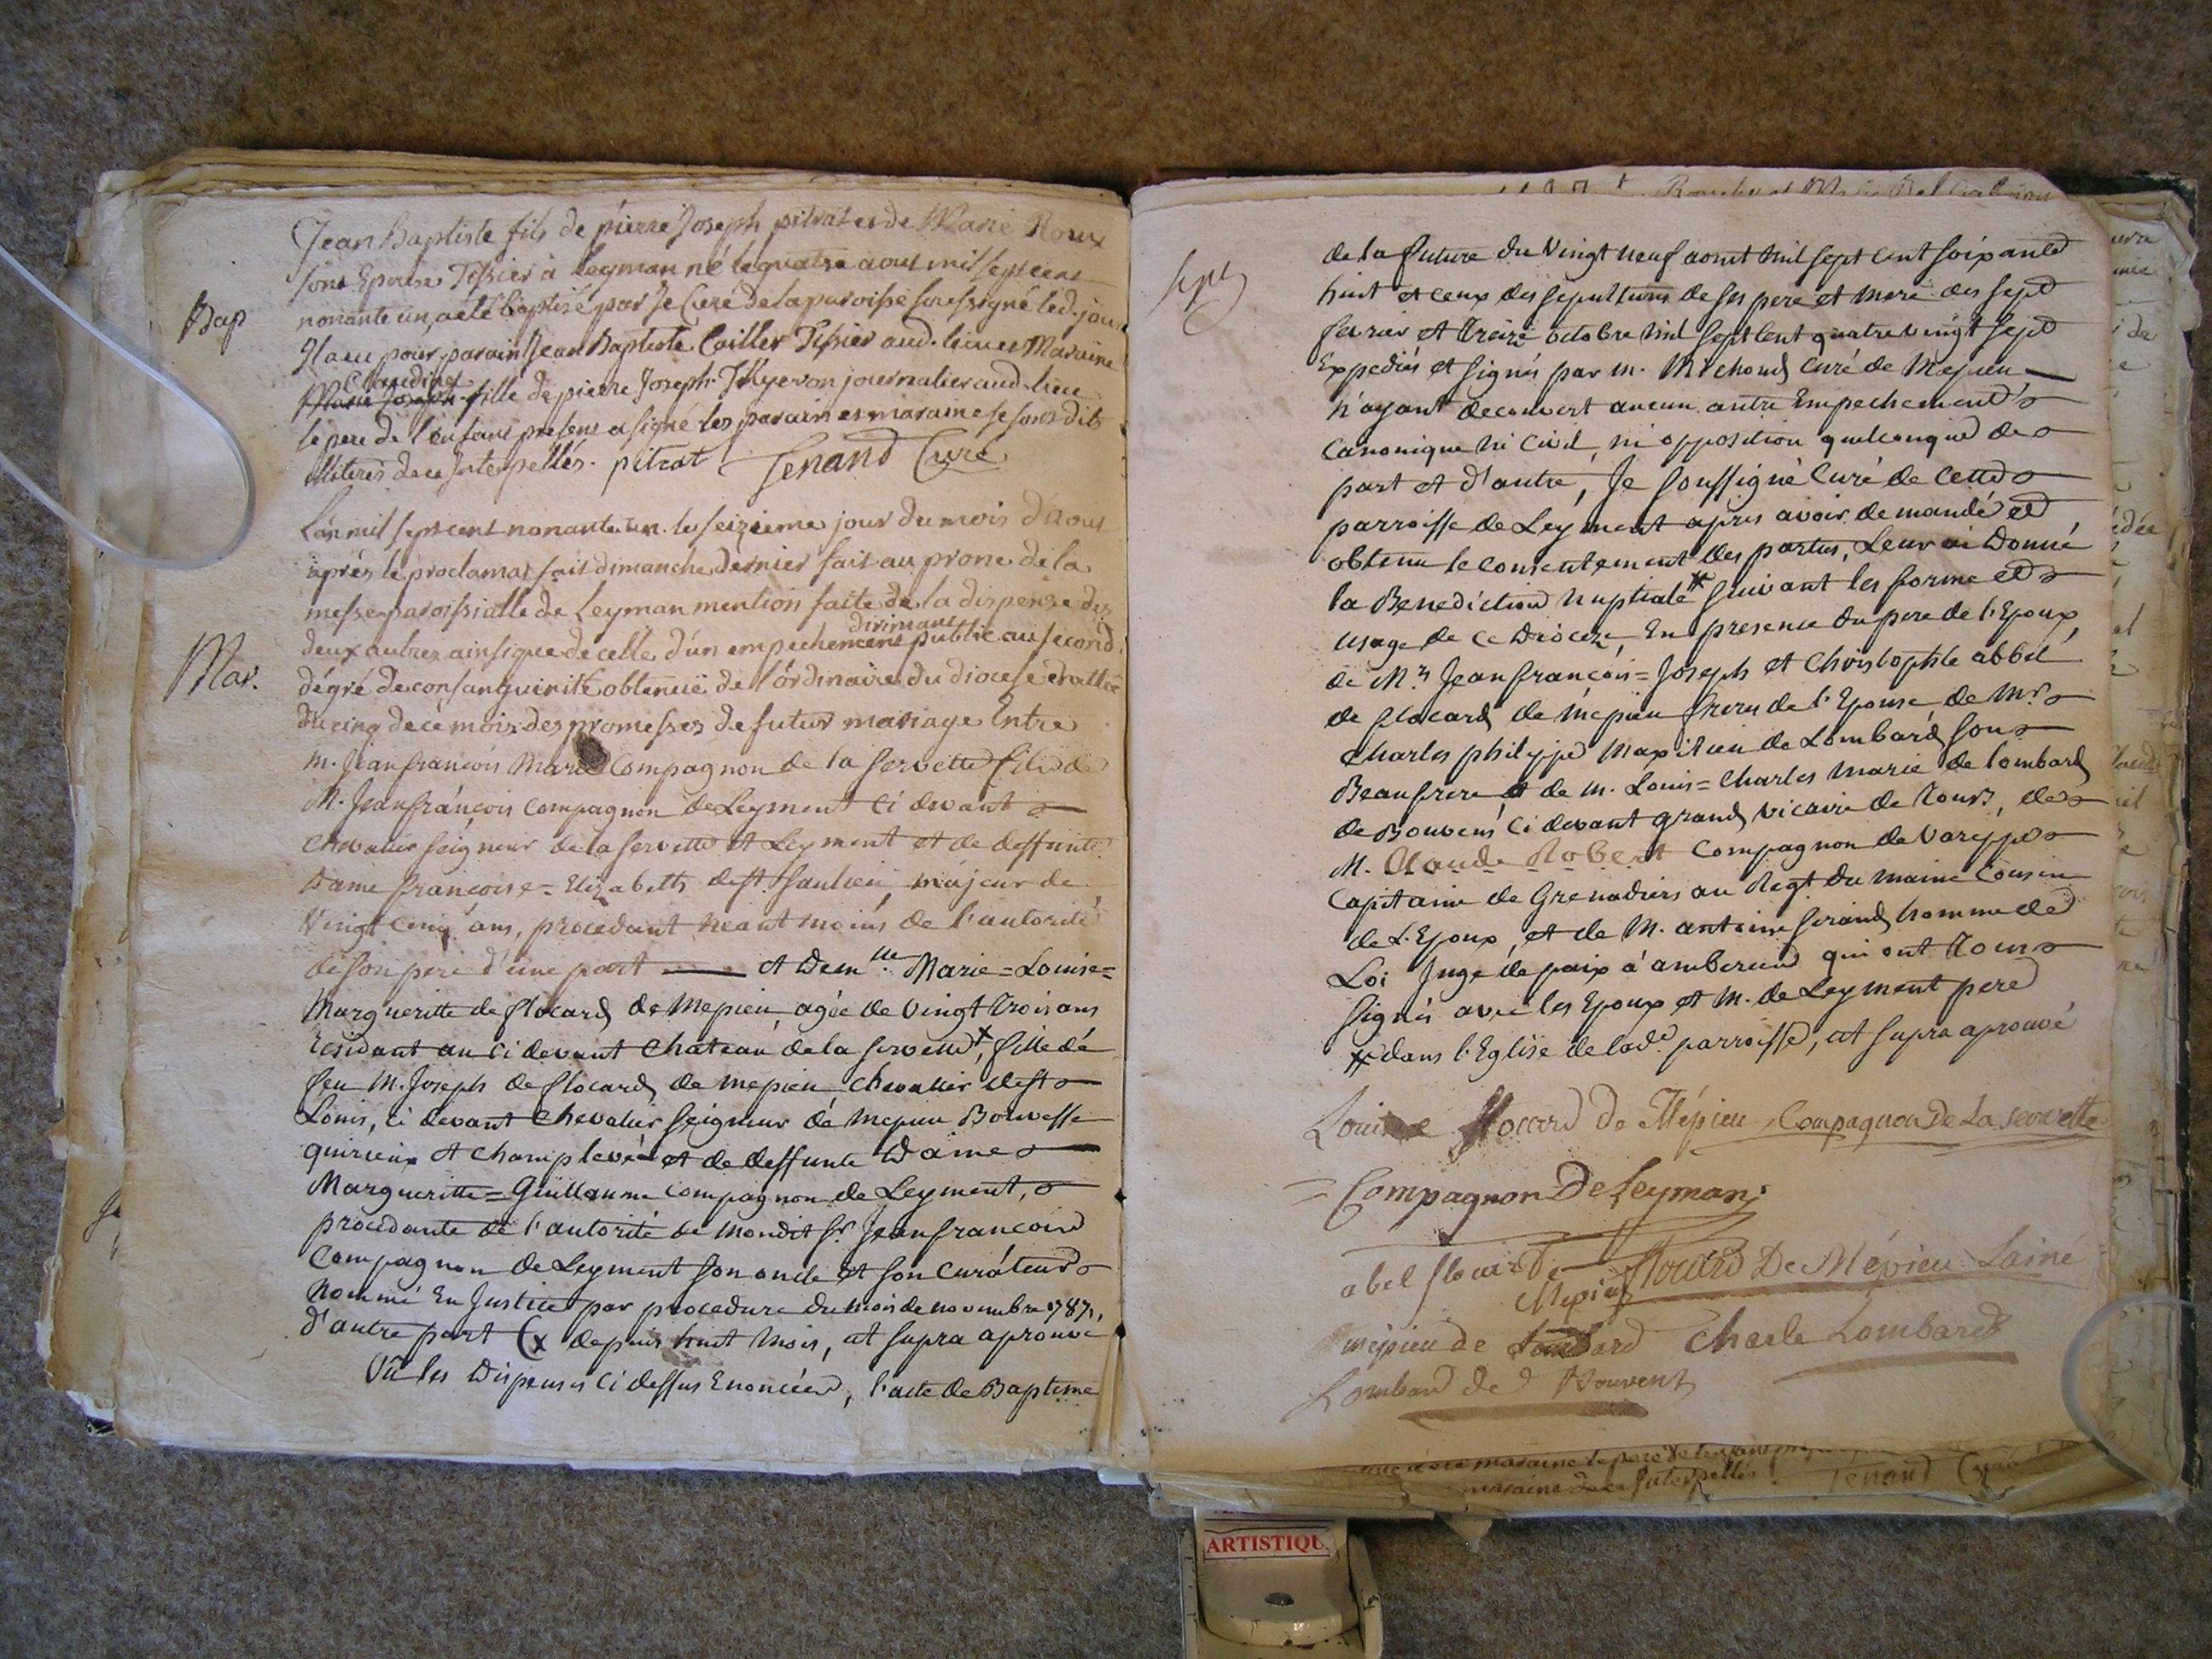 Bap
Jean Baptiste fils de pierre Joseph pitrat et de Marie Roux
son Epouse Tissier à leyman né le quatre aout mil sept cent
nonante un, a été baptisé par Je Curé de la paroisse soussigné led. jour
Il a eu pour parain Jean Baptiste Cailler Tissier aud. lieu et Maraine
Claudine
Marie Joseph fille de pierre Joseph journalier aud. lieu
le pere de l'enfant present a signé les parain et maraine se sont dits
illiterés de ce Interpellés. pitrat Tenand Curé
Mar.
L'an mil sept cent nonante un. le seizieme jour du mois d'Aout
après le proclamat fait dimanche dernier fait au prone de la
messe paroissialle de Leyman mention faite de la dispense des
dirimant
deux autres ainsi que de celle d'un empechement public au second
dégré de consanguinité obtenuë de l'ordinaire du diocese
du cinq de ce mois des promesses de futur mariage Entre
M. Jean françois Marie Compagnon de la Servette fils de
M. Jean françois Compagnon de Leyment ci devant
chevalier seigneur de la Servette et Leyment et de deffunte
Dame françoise = Elizabeth de St. majeur de
Vingt cinq ans, procedant neant moins de l'autorité
de son pere d'une part — et Dem.lle Marie = Louise =
Margueritte de flocard de Mepieu, agée de vingt trois ans
résidant au ci devant Chateau de la servette x, fille de
feu M. Joseph de flocard de mepieu chevalier de St
Louis, ci devant chevalier seigneur de mepieu Bouvesse
quirieux et champlevé et de deffunte Dame
Margueritte = Guillaume compagnon de Leyment,
procedante de l'autorité de mondit Sr. Jean francois
Compagnon de Leyment son oncle et son curateur
nommé En Justice par procedure du mois de novembre 1787,
d'autre part (x depuis huit mois, ut supra aprouvé
Vû les Dispenses ci dessus Enoncées, l'acte de Baptême
de la future du Vingt neuf aout mil sept cent soixante
huit et ceux des sepultures de ses pere et mere des sept
fevrier et treize octobre mil sept cent quatre vingt sept
Expediés et signés par m. Michoud curé de Mepieu —
n'ayant decouvert aucun autre Empechement
canonique ni civil, ni opposition quelconque de
part et d'autre, Je soussigné Curé de cette
parroisse de Leyment apres avoir demandé et
obtenu le consentement des parties, Leur ai donné
la Benediction nuptiale x suivant les forme et
usage de ce Diocèze, En presence du pere de l'Epoux,
de Mrs Jean françois = Joseph et Christophle abbel
de flocard de mepieu freres de l'Epouse, de Mr.
Charles philippe de Lombard son
Beaufrere, et de M. Louis = Charles Marie de lombard
de Bouvens ci devant grand vicaire de Tours, de
M. Claude Robert Compagnon de Vareppe
Capitaine de Grenadiers au Regt. du maine Cousin
de L'Epoux, et de M. antoine homme de
Loi Juge de paix à amberieu qui ont Tous
signés avec les Epoux et M. de Leyment pere
x dans l'Eglise de lad.e parroisse, ut supra aprouvé
Louise flocard de Mépieu Compagnon De La servette
= Compagnon De Leyman
abel flocard de Mepieu flocard De Mépieu Lainé
mepieu de Lombard Charle Lombard
Lombard de Bouvent
Tenand Curé
ARTISTIQU